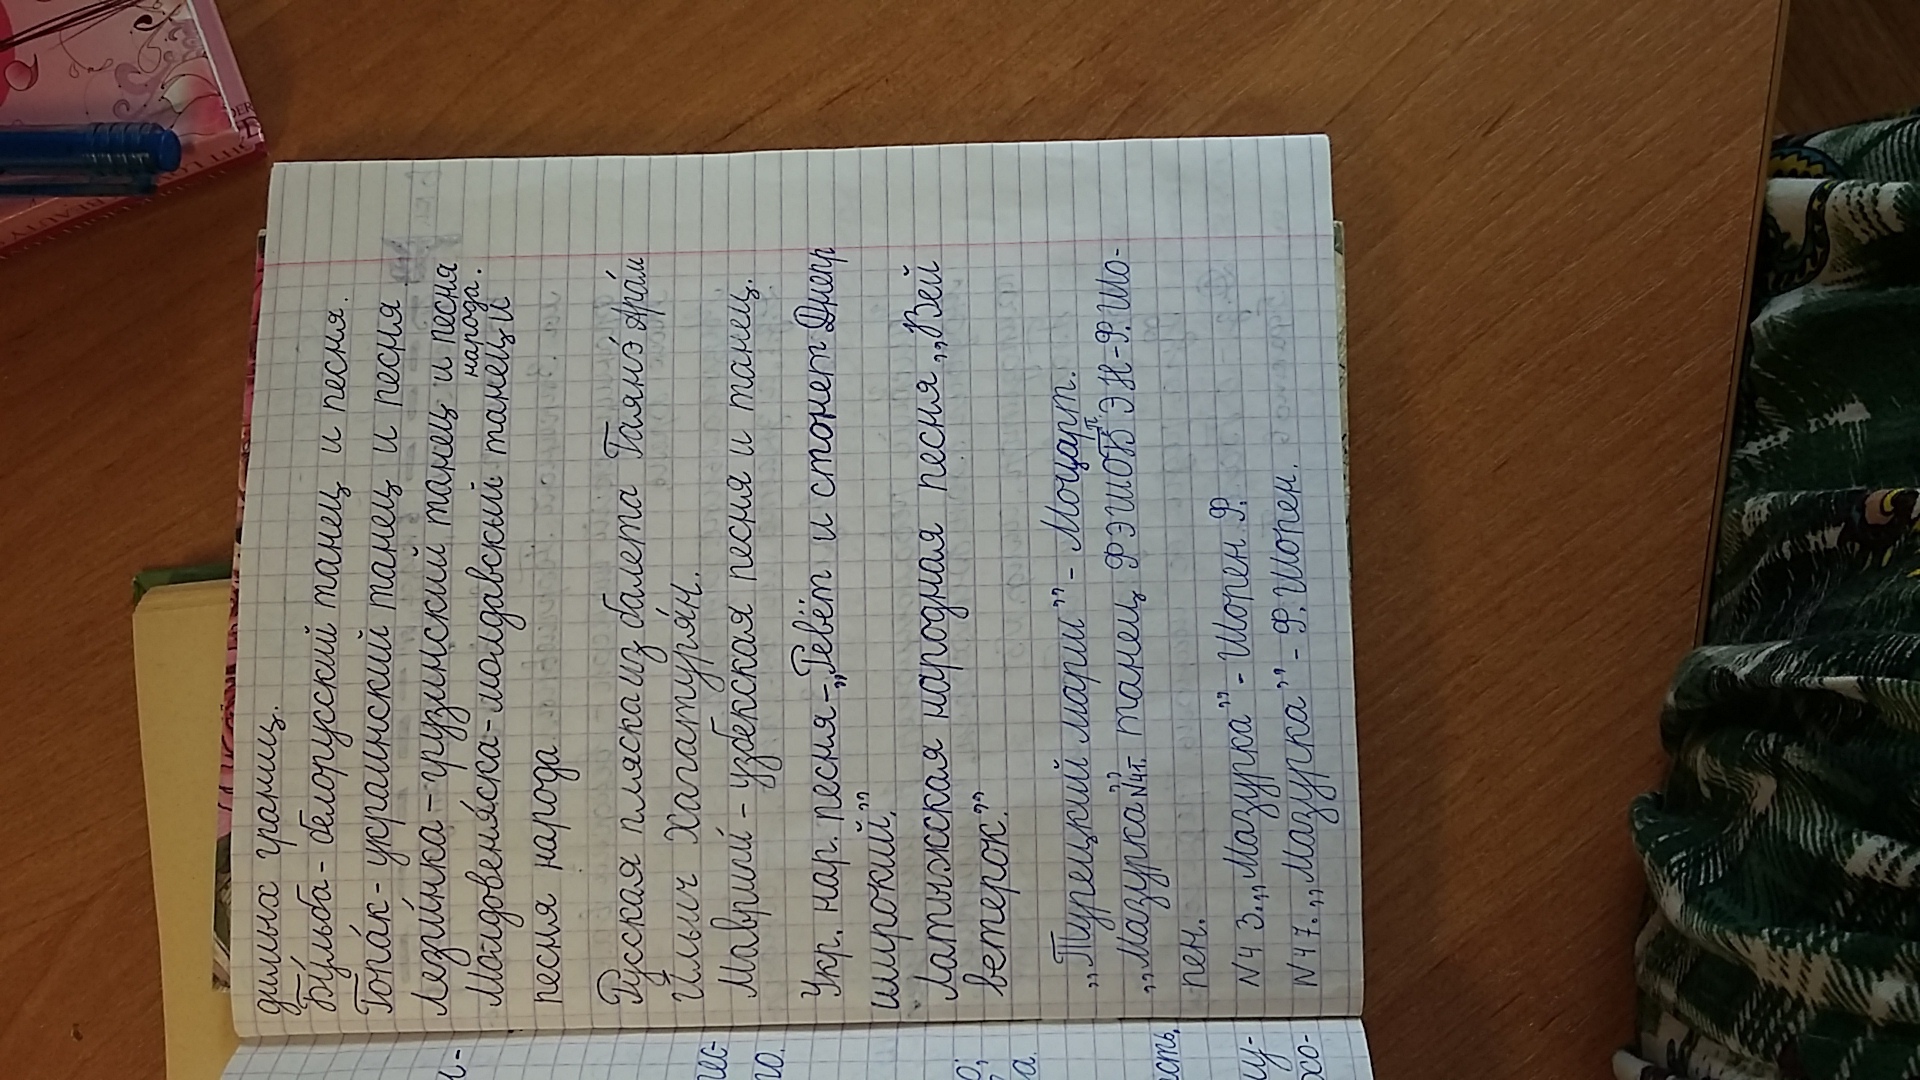 дильных границ.
Бу́льба - белорусский танец и песня.
Гопа́к - украинский танец и песня
Лезги́нка - грузинский танец и песня
народа.
Молдовеня́ска - молдавский танец и
песня народа.
Русская пляска из балета Гаянэ́ Ара́м
Ильич Хапатуря́н.
Маврики́ - узбекская песня и танец.
Укр. нар. песня - „Ревёт и стонет Днепр
широкий”.
Латыжская народная песня „Вей
ветерок.”
„Турецкий марш” - Моцарт.
„Мазурка” №41. танец ФЭШОБ ЭН - Ф. Шо-
п
пен.
№43. „Мазурка” - Шопен. Ф.
№47. „Мазурка” - Ф. Шопен.